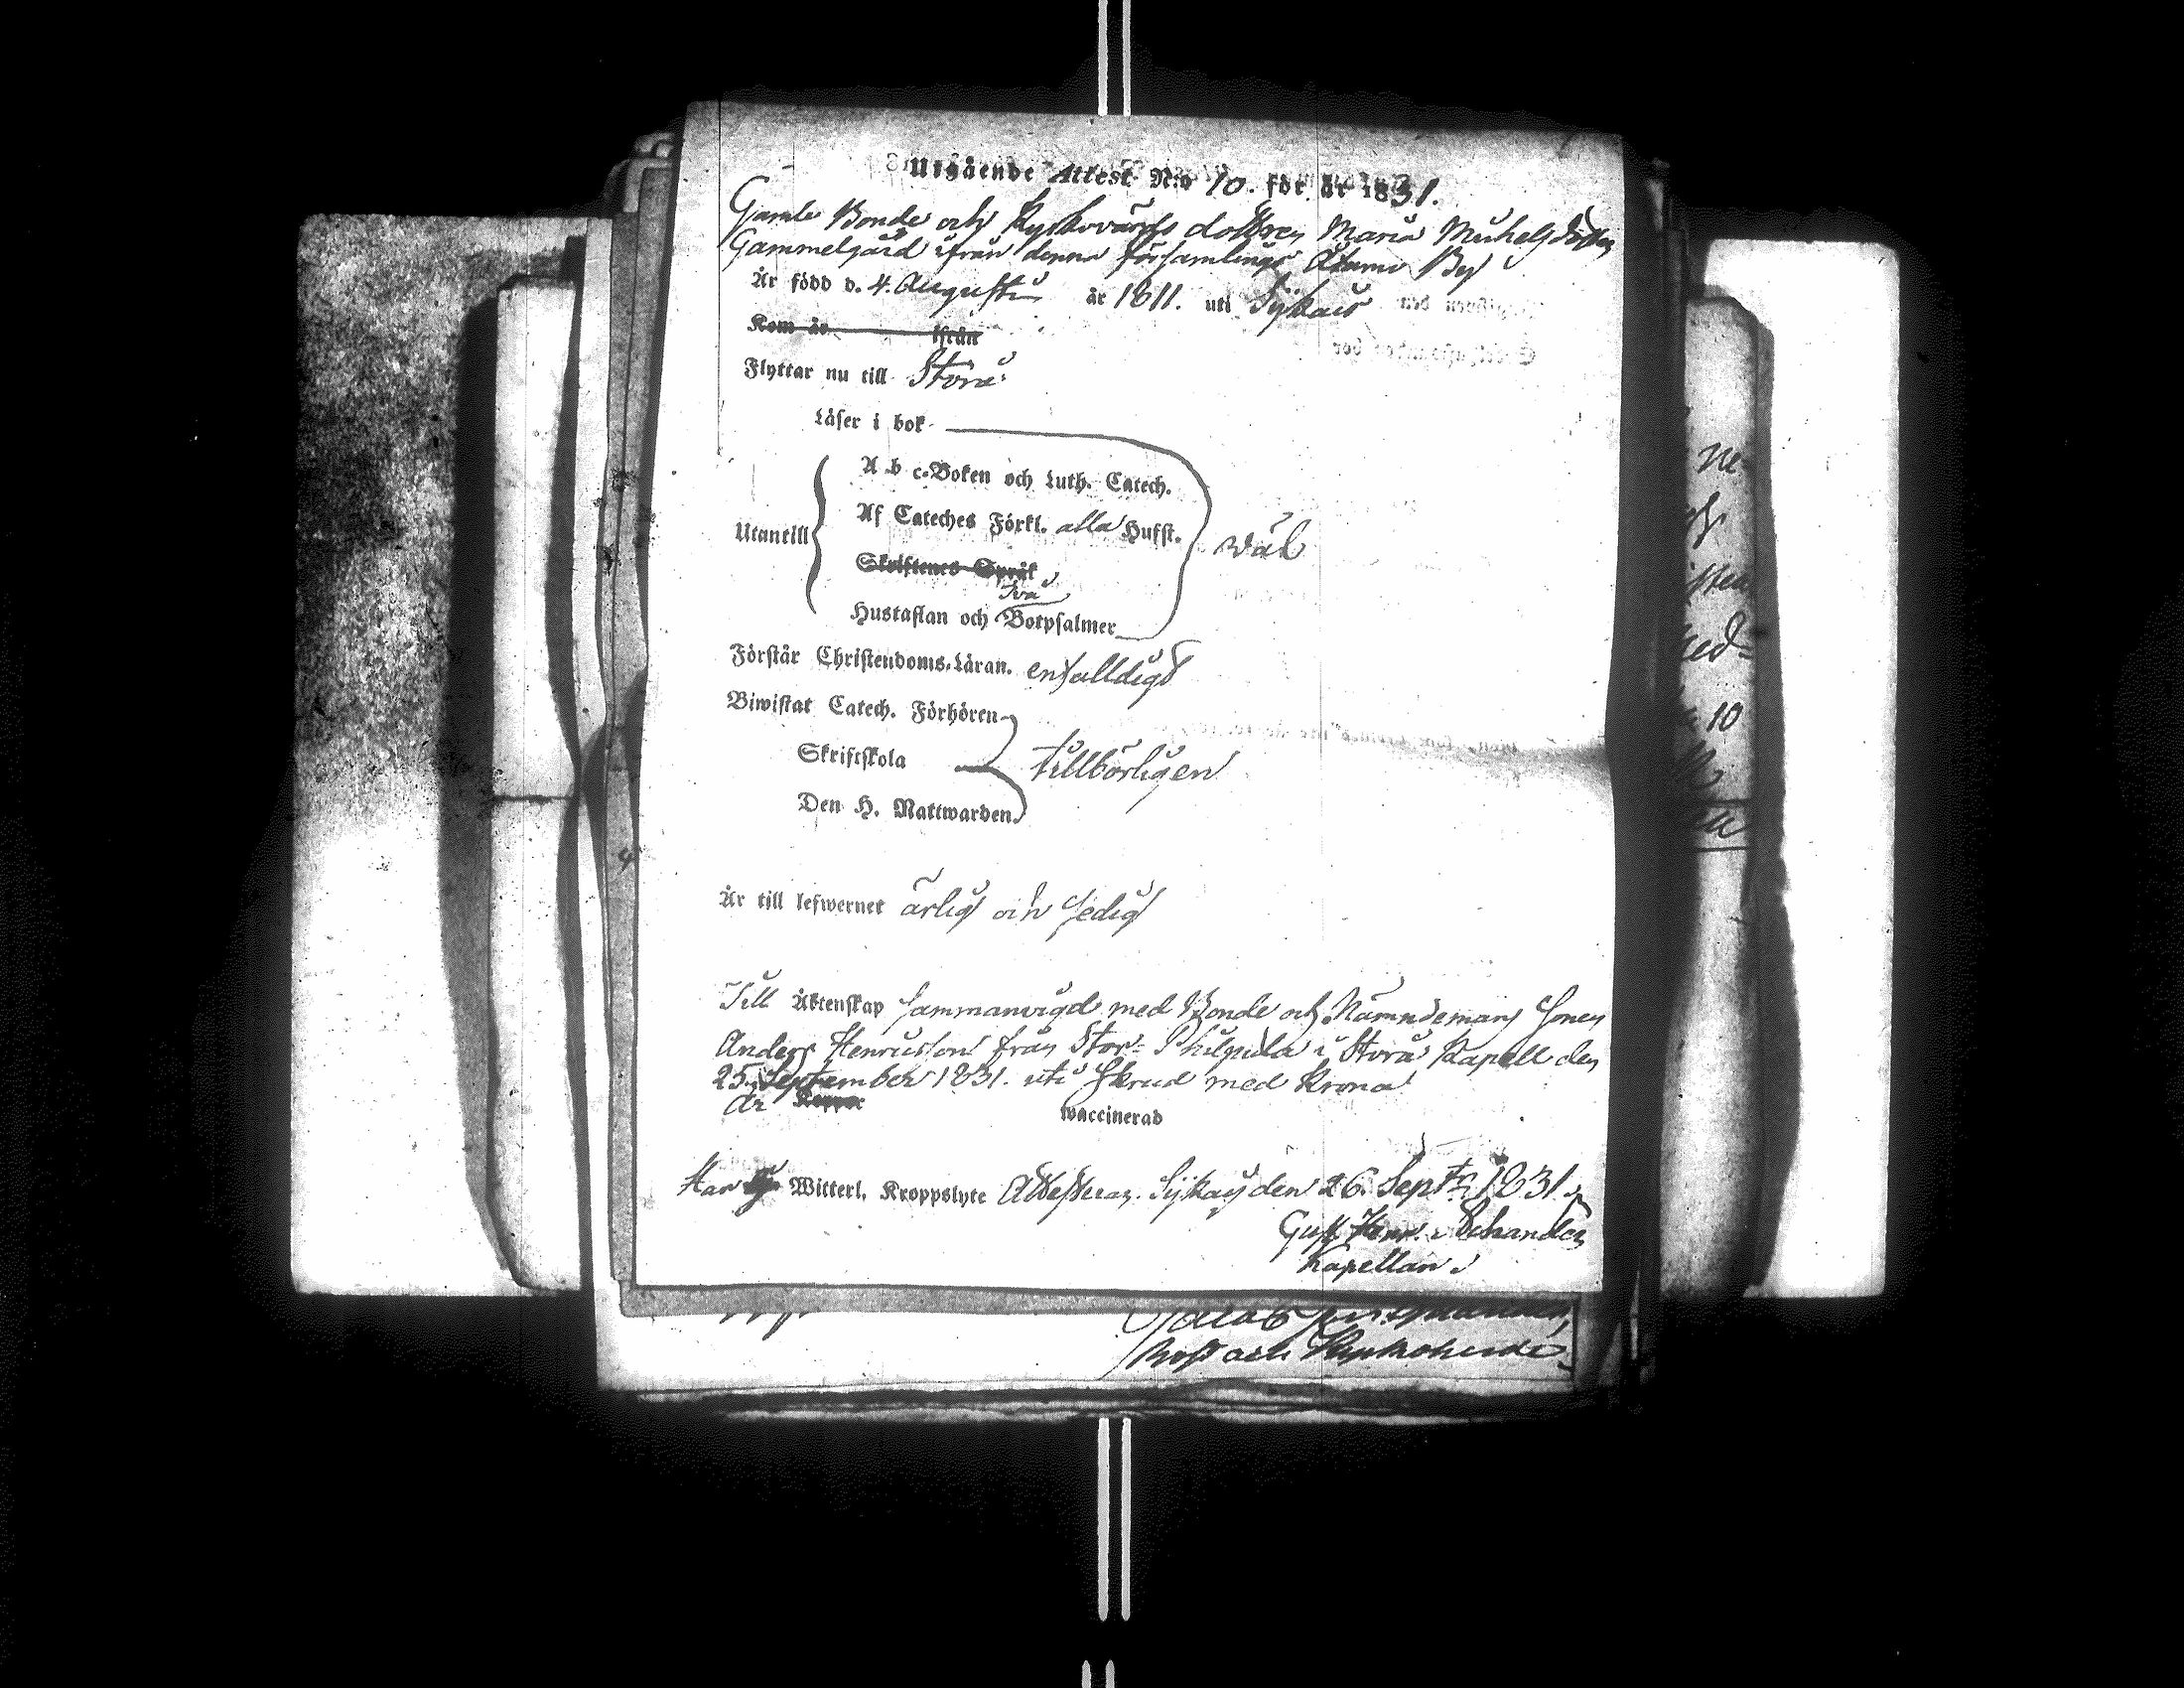 Utgående Attest N:o 10. för år 1831.
Gamle Bonde och Kyrkovärds dottren Maria Michelsdotter
Gammelgård ifrån denna församlings By
Är född d. 4. Augusti år 1811. uti Sijkais
Kom år ifrån
Flyttar nu till Storå
Läser i bok
A b c-Boken och Luth. Catech.
Af Cateches Förkl. alla Hufst.
Utantill
wäl
Skriftenes Språk
två
Hustaflan och Botpsalmer
Förstår Christendoms-Läran. enfalldigt
Biwistat Catech. Förhören
Skriftskola
tillbörligen
Den H. Nattwarden.
Är till lefwernet ärlig och sedig
Till Äktenskap sammanvigd med Bonde och Nämndemans Sonen
Anders Henricsson från Stor-Philpula i Storå Kapell den
25 September 1831. uti Skrud med Krona
är vaccinerad
Har Witterl. Kroppslyte Attesteras. Sijkais den 26. Septr. 1831.
Gust. Henr.
Kapellan
Prost och Kyrkoherde